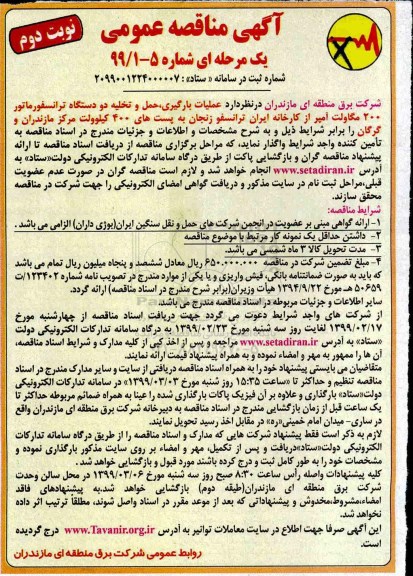 آگهی مناقصه عمومی
نوبت دوم
یک مرحله ای شماره ۵-۹۹/۱
شماره ثبت در سامانه « ستاد» : ۲۰۹۹۰۰۱۲۲۴۰۰۰۰۰۷
شرکت برق منطقه ای مازندران درنظردارد عملیات بارگیری،حمل و تخلیه دو دستگاه ترانسفورماتور
۲۰۰ مگاولت آمپر از کارخانه ایران ترانسفو زنجان به پست های ۴۰۰ کیلوولت مرکز مازندران و
گرگان را برابر شرایط ذیل و به شرح مشخصات و اطلاعات و جزئیات مندرج در اسناد مناقصه به
تأمین کننده واجد شرایط واگذار نماید، که مراحل برگزاری مناقصه از دریافت اسناد مناقصه تا ارائه
پیشنهاد مناقصه گران و بازگشایی پاکت از طریق درگاه سامانه تدارکات الکترونیکی دولت«ستاد» به
آدرس www.setadiran.ir انجام خواهد شد و لازم است مناقصه گران در صورت عدم عضویت
قبلی،مراحل ثبت نام در سایت مذکور و دریافت گواهی امضای الکترونیکی را جهت شرکت در مناقصه
محقق سازند.
شرایط مناقصه:
۱-ارائه گواهی مبنی بر عضویت در انجمن شرکت های حمل و نقل سنگین ایران(بوژی داران) الزامی می باشد .
۲- داشتن حداقل یک نمونه کار مرتبط با موضوع مناقصه
۳- مدت تحویل کالا ۳ ماه شمسی می باشد.
۴- مبلغ تضمین شرکت در مناقصه ۶۵۰.۰۰۰.۰۰۰ ریال معادل ششصد و پنجاه میلیون ریال تمام می باشد
که باید به صورت ضمانتنامه بانکی، فیش واریزی و یا یکی از موارد مندرج در تصویب نامه شماره ۱۲۳۴۰۲/ت
۵۰۶۵۹ هـ مورخ ۱۳۹۴/۹/۲۲ هیأت وزیران(برابر شرح مندرج در اسناد مناقصه) ارائه گردد.
سایر اطلاعات و جزئیات مربوطه در اسناد مناقصه مندرج می باشد.
از شرکت های واجد شرایط دعوت می گردد جهت دریافت اسناد مناقصه از چهارشنبه مورخ
۱۳۹۹/۰۲/۱۷ لغایت روز سه شنبه مورخ ۱۳۹۹/۰۲/۲۳ به درگاه سامانه تدارکات الکترونیکی دولت
«ستاد» به آدرس www.setadiran.ir مراجعه و پس از اخذ کپی از کلیه مدارک و شرایط اسناد مناقصه،
آن ها را ممهور به مهر و امضاء نموده و به همراه پیشنهاد قیمت ارائه نمایند.
متقاضیان می بایستی پیشنهاد خود را به همراه اسناد مناقصه دریافتی از سایت و سایر مدارک مندرج در اسناد
مناقصه تنظیم و حداکثر تا «ساعت ۱۵:۳۵ روز شنبه مورخ ۱۳۹۹/۰۳/۰۳» در سامانه تدارکات الکترونیکی
دولت«ستاد» بارگذاری و علاوه بر آن فیزیک پاکات بارگذاری شده را عینا به همراه ضمائم مربوطه حداکثر تا
یک ساعت قبل از زمان بازگشایی مندرج در اسناد مناقصه به دبیرخانه شرکت برق منطقه ای مازندران واقع
در ساری- میدان امام خمینی«ره» در مقابل اخذ رسید تحویل نمایند.
لازم به ذکر است فقط پیشنهاد شرکت هایی که مدارک و اسناد مناقصه را از طریق درگاه سامانه تدارکات
الکترونیکی دولت«ستاد»دریافت و پس از تکمیل، مهر و امضاء بر روی سایت مذکور بارگذاری نموده و
مشخصات خود را به طور کامل ثبت و درج کرده باشند مورد قبول و بازگشایی خواهد شد .
کلیه پیشنهادات واصله رأس ساعت ۸:۳۰ صبح روز سه شنبه مورخ ۱۳۹۹/۰۳/۰۶ در محل سالن وحدت
شرکت برق منطقه ای مازندران(طبقه دوم) بازگشایی خواهد شد.به پیشنهادهای فاقد
امضاء،مشروط،مخدوش و پیشنهاداتی که بعد از موعد مقرر در اسناد واصل شوند، مطلقا ترتیب اثر داده
نخواهد شد.
این آگهی صرفا جهت اطلاع در سایت معاملات توانیر به آدرس www.Tavanir.org.ir درج گردیده
است.
روابط عمومی شرکت برق منطقه ای مازندران